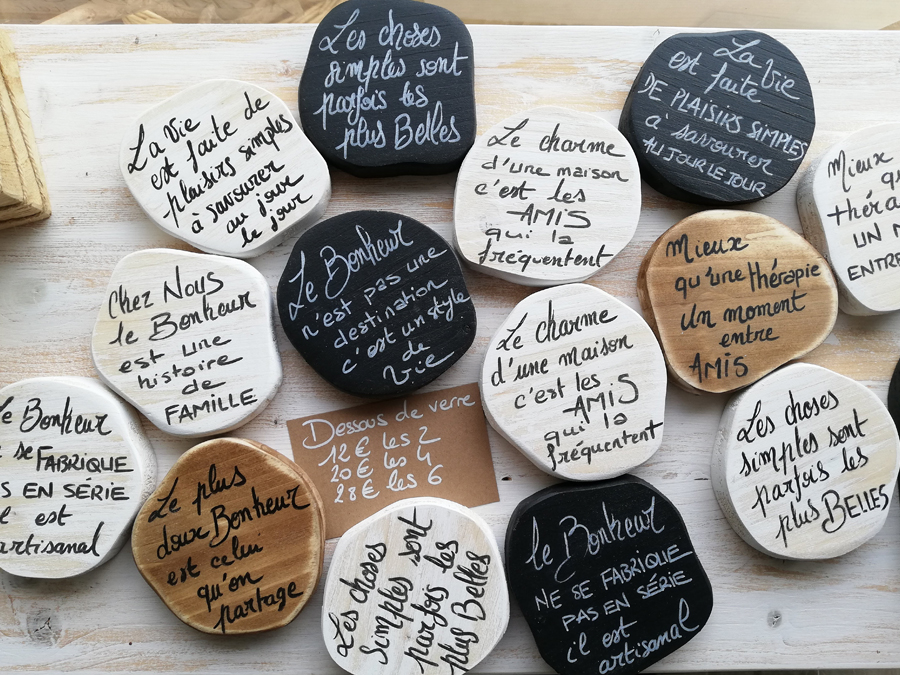 Les choses
simples sont
parfois les
plus Belles
La Vie
est faite
DE PLAISIRS SIMPLES
à savourer
AU JOUR LE JOUR
La Vie
est faite de
plaisirs simples
à savourer
au jour
le jour
Le charme
d'une maison
c'est les
AMIS
qui la
fréquentent
Mieux
théra
UN
ENTRE
Le Bonheur
n'est pas une
destination
c'est un style
de
Vie
Mieux
qu'une thérapie
Un moment
entre
AMIS
Chez Nous
le Bonheur
est une
histoire
de
FAMILLE
Le charme
d'une maison
c'est les
AMIS
qui la
fréquentent
Les choses
simples sont
parfois les
plus BELLES
Bonheur
se FABRIQUE
EN SÉRIE
est
artisanal
Dessous de verre
12€ les 2
20€ les 4
28€ les 6
Le plus
doux Bonheur
est celui
qu'on
partage
Les choses
Simples sont
parfois les
plus Belles
le Bonheur
NE SE FABRIQUE
PAS EN SÉRIE
il est
artisanal